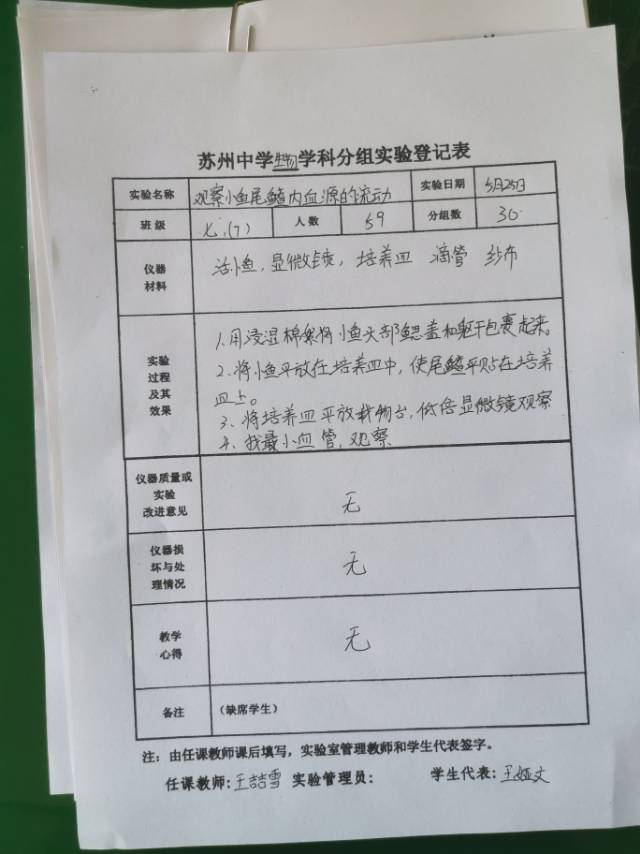 苏州中学生物学科分组实验登记表
实验名称 观察小鱼尾鳍内血源的流动 实验日期 5月25日
班级 七.(7) 人数 59 分组数 30
仪器
材料
活小鱼,显微镜,培养皿 滴管 纱布
实验
过程
及其
效果
1.用浸湿棉絮将小鱼头部鳃盖和躯干包裹起来。
2.将小鱼平放在培养皿中,使尾鳍平贴在培养
皿上。
3、将培养皿平放载物台,低倍显微镜观察
4.找最小血管,观察
仪器质量或
实验
改进意见
无
仪器损
坏与处
理情况
无
教学
心得
无
备注 (缺席学生)
注:由任课教师课后填写,实验室管理教师和学生代表签字。
任课教师:王喆雪 实验管理员: 学生代表:王娅文